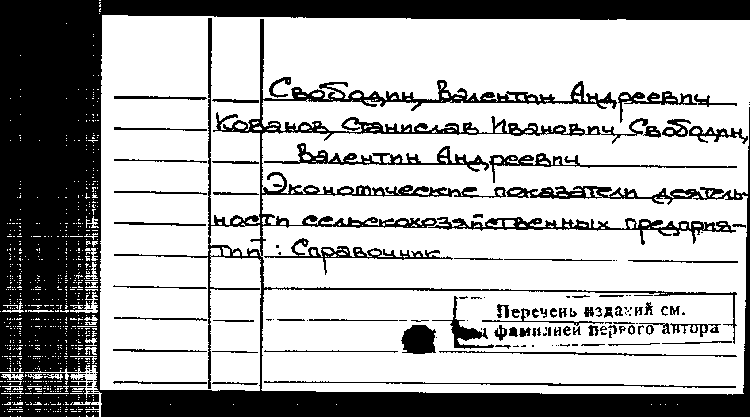 Свободин, Валентин Андреевич
Кованов, Станислав Иванович, Свободин,
Валентин Андреевич
Экономические показатели деятель-
ности сельскохозяйственных предприя-
тий : Справочник
Перечень изданий см.
фамилией первого автора